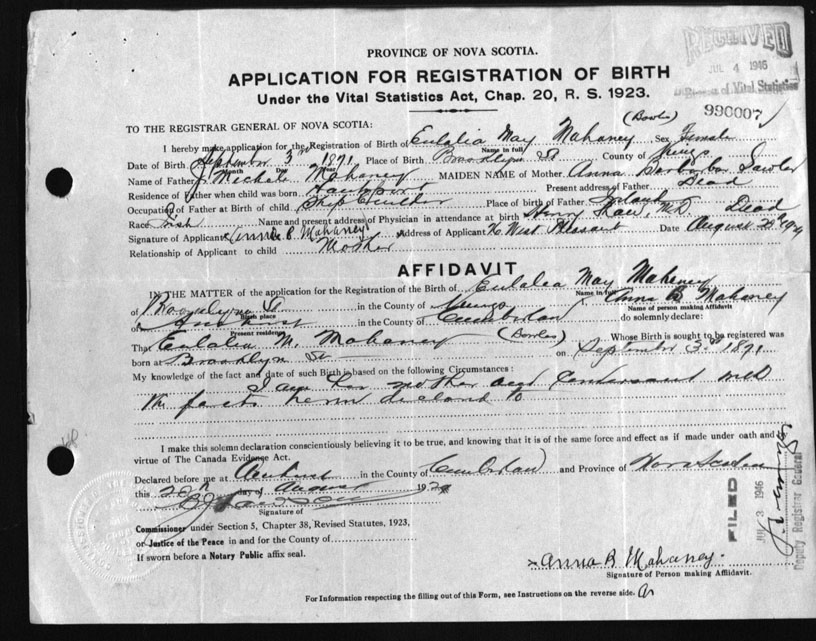 PROVINCE OF NOVA SCOTIA.
APPLICATION FOR REGISTRATION OF BIRTH
Under the Vital Statistics Act, Chap. 20, R. S. 1923.
RECEIVED
JUL 4 1946
of Vital Statistics
990007
TO THE REGISTRAR GENERAL OF NOVA SCOTIA:
(Bowles)
I hereby make application for the Registration of Birth of Eulalia May Mahaney Sex Female
Name in full
Date of Birth September 3rd 1891 Place of Birth Brooklyn St County of Kings
Month Day Year
Name of Father J. Michael Mahaney MAIDEN NAME of Mother Anna Barbara Lawlor
Residence of Father when child was born Hantsport Present address of Father Dead
Occupation of Father at Birth of child Ship Builder Place of birth of Father
Race Irish Name and present address of Physician in attendance at birth Henry Shaw, M.D. Dead
Signature of Applicant Annie B Mahaney Address of Applicant 76 West Pleasant Date August
Relationship of Applicant to child Mother
AFFIDAVIT
IN THE MATTER of the application for the Registration of the Birth of Eulalea May Mahaney
Name in full
of Brooklyn St in the County of Kings Anna B Mahaney
Birth place Name of person making Affidavit
of Amherst in the County of Cumberland do solemnly declare:
Present residence
That Eulalia M. Mahaney (Bowles) Whose Birth is sought to be registered was
born at Brooklyn St on September 3rd 1891
My knowledge of the fact and date of such Birth is based on the following Circumstances:
I am her mother and conversant with
the facts herein declared to
I make this solemn declaration conscientiously believing it to be true, and knowing that it is of the same force and effect as if made under oath and by
virtue of The Canada Evidence Act.
Declared before me at Amherst in the County of Cumberland and Province of Nova Scotia
this day of August
Signature of
Commissioner under Section 5, Chapter 38, Revised Statutes, 1923,
or Justice of the Peace in and for the County of
If sworn before a Notary Public affix seal.
FILED
3 1946
Deputy Registrar General
Anna B Mahaney.
Signature of Person making Affidavit.
For Information respecting the filling out of this Form, see Instructions on the reverse side.